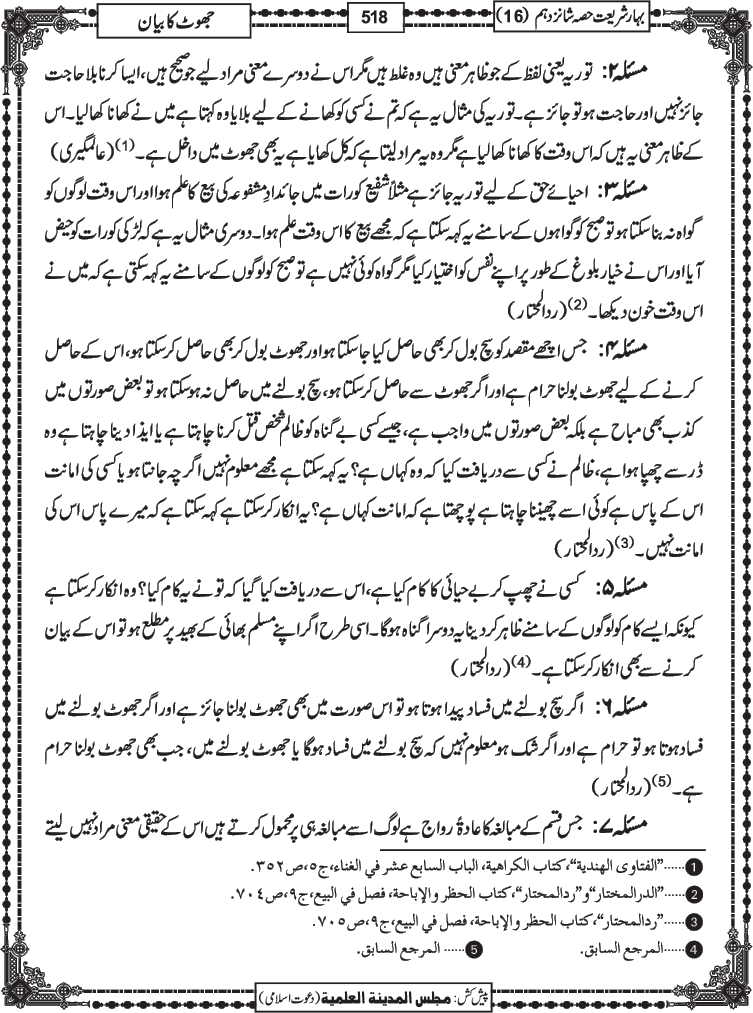 بہار شریعت حصہ شانزدہم (16)
518
جھوٹ کا بیان
مسئلہ ۲: توریہ یعنی لفظ کے جو ظاہر معنی ہیں وہ غلط ہیں مگر اس نے دوسرے معنی مراد لیے جو صحیح ہیں، ایسا کرنا بلا حاجت
جائز نہیں اور حاجت ہو تو جائز ہے۔ توریہ کی مثال یہ ہے کہ تم نے کسی کو کھانے کے لیے بلایا وہ کہتا ہے میں نے کھانا کھالیا۔ اس
کے ظاہر معنی یہ ہیں کہ اس وقت کا کھانا کھالیا ہے مگر وہ یہ مراد لیتا ہے کہ کل کھایا ہے یہ بھی جھوٹ میں داخل ہے۔(1) (عالمگیری)
مسئلہ ۳: احیائے حق کے لیے توریہ جائز ہے مثلاً شفیع کو رات میں جائدادِ مشفوعہ کی بیع کا علم ہوا اور اس وقت لوگوں کو
گواہ نہ بنا سکتا ہو تو صبح کو گواہوں کے سامنے یہ کہہ سکتا ہے کہ مجھے بیع کا اس وقت علم ہوا۔ دوسری مثال یہ ہے کہ لڑکی کو رات کو حیض
آیا اور اس نے خیار بلوغ کے طور پر اپنے نفس کو اختیار کیا مگر گواہ کوئی نہیں ہے تو صبح کو لوگوں کے سامنے یہ کہہ سکتی ہے کہ میں نے
اس وقت خون دیکھا۔(2) (ردالمحتار)
مسئلہ ۴: جس اچھے مقصد کو سچ بول کر بھی حاصل کیا جاسکتا ہو اور جھوٹ بول کر بھی حاصل کرسکتا ہو، اس کے حاصل
کرنے کے لیے جھوٹ بولنا حرام ہے اور اگر جھوٹ سے حاصل کرسکتا ہو، سچ بولنے میں حاصل نہ ہوسکتا ہو تو بعض صورتوں میں
کذب بھی مباح ہے بلکہ بعض صورتوں میں واجب ہے، جیسے کسی بے گناہ کو ظالم شخص قتل کرنا چاہتا ہے یا ایذا دینا چاہتا ہے وہ
ڈر سے چھپا ہوا ہے، ظالم نے کسی سے دریافت کیا کہ وہ کہاں ہے؟ یہ کہہ سکتا ہے مجھے معلوم نہیں اگرچہ جانتا ہو یا کسی کی امانت
اس کے پاس ہے کوئی اسے چھیننا چاہتا ہے پوچھتا ہے کہ امانت کہاں ہے؟ یہ انکار کرسکتا ہے کہہ سکتا ہے کہ میرے پاس اس کی
امانت نہیں۔(3) (ردالمحتار)
مسئلہ ۵: کسی نے چھپ کر بے حیائی کا کام کیا ہے، اس سے دریافت کیا گیا کہ تو نے یہ کام کیا؟ وہ انکار کرسکتا ہے
کیونکہ ایسے کام کو لوگوں کے سامنے ظاہر کردینا یہ دوسرا گناہ ہوگا۔ اسی طرح اگر اپنے مسلم بھائی کے بھید پر مطلع ہو تو اس کے بیان
کرنے سے بھی انکار کرسکتا ہے۔(4) (ردالمحتار)
مسئلہ ۶: اگر سچ بولنے میں فساد پیدا ہوتا ہو تو اس صورت میں بھی جھوٹ بولنا جائز ہے اور اگر جھوٹ بولنے میں
فساد ہوتا ہو تو حرام ہے اور اگر شک ہو معلوم نہیں کہ سچ بولنے میں فساد ہوگا یا جھوٹ بولنے میں، جب بھی جھوٹ بولنا حرام
ہے۔(5) (ردالمحتار)
مسئلہ ۷: جس قسم کے مبالغہ کا عادۃً رواج ہے لوگ اسے مبالغہ ہی پر محمول کرتے ہیں اس کے حقیقی معنی مراد نہیں لیتے
1 ......"الفتاوى الهندية"، كتاب الكراهية، الباب السابع عشر في الغناء، ج٥، ص٣٥٢.
2 ......"الدرالمختار" و"ردالمحتار"، كتاب الحظر والإباحة، فصل في البيع، ج٩، ص٧٠٤.
3 ......"ردالمحتار"، كتاب الحظر والإباحة، فصل في البيع، ج٩، ص٧٠٥.
4 ......المرجع السابق. 5 ...... المرجع السابق.
پیش کش: مجلس المدينة العلمية (دعوت اسلامی)